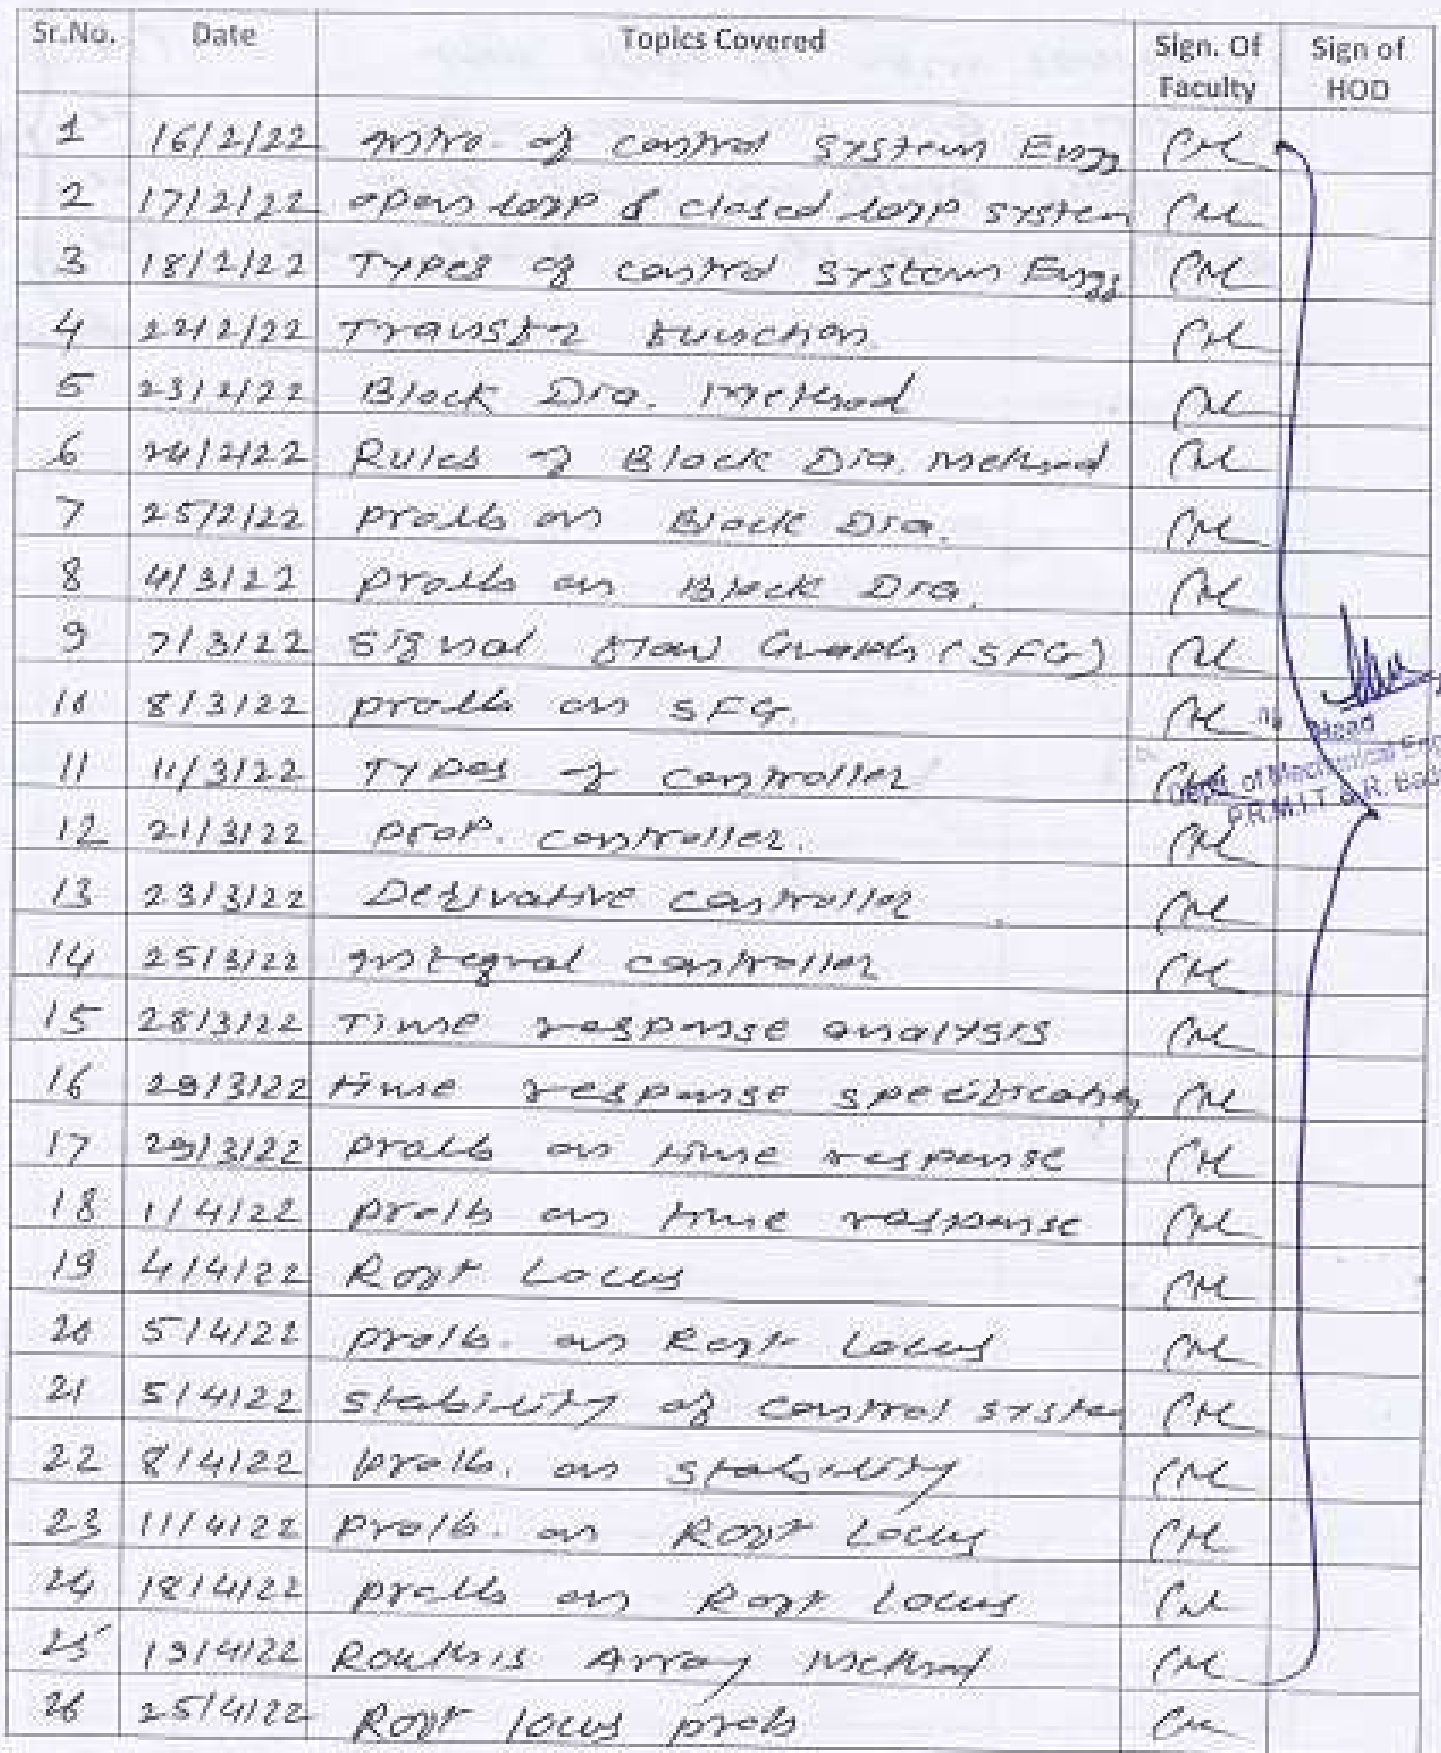 Sr.No. Date Topics Covered Sign. Of Faculty Sign of HOD
1 16/2/22 Intro. of control system Engg
2 17/2/22 open loop & closed loop system
3 18/2/22 Types of control system Engg
4 22/2/22 Transfer function
5 23/2/22 Block Dia. Method
6 24/2/22 Rules of Block Dia. Method
7 25/2/22 probs on Block Dia.
8 4/3/22 probs on Block Dia.
9 7/3/22 Signal flow Graphs (SFG)
10 8/3/22 probs on SFG.
Head
11 11/3/22 Types of controller
Dept. of Mechanical
P.R.M.I.T. & R.
12 21/3/22 prop. controller.
13 23/3/22 Derivative controller
14 25/3/22 Integral controller
15 28/3/22 Time response analysis
16 29/3/22 time response specification
17 29/3/22 probs on time response
18 1/4/22 probs on time response
19 4/4/22 Root Locus
20 5/4/22 probs. on Root Locus
21 5/4/22 stability of control system
22 8/4/22 probs. on stability
23 11/4/22 probs. on Root Locus
24 18/4/22 probs on Root Locus
25 19/4/22 Routh's Array Method
26 25/4/22 Root locus probs